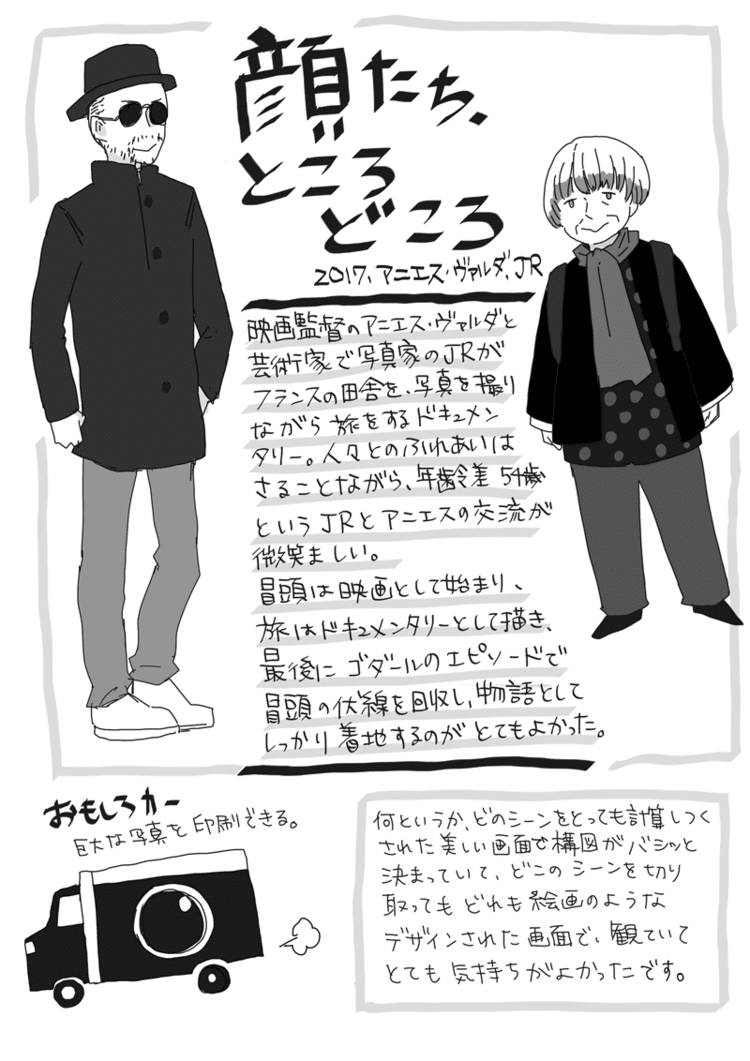 顔たち、
ところ
どころ
2017、アニエス・ヴァルダ、JR
映画監督のアニエス・ヴァルダと
芸術家で写真家のJRが
フランスの田舎を、写真を撮り
ながら旅をするドキュメン
タリー。人々とのふれあいは
さることながら、年齢差54歳
というJRとアニエスの交流が
微笑ましい。
冒頭は映画として始まり、
旅はドキュメンタリーとして描き、
最後にゴダールのエピソードで
冒頭の伏線を回収し、物語として
しっかり着地するのがとてもよかった。
おもしろカー
巨大な写真を印刷できる。
何というか、どのシーンをとっても計算しつく
された美しい画面で構図がバシッと
決まっていて、どこのシーンを切り
取ってもどれも絵画のような
デザインされた画面で、観ていて
とても気持ちがよかったです。